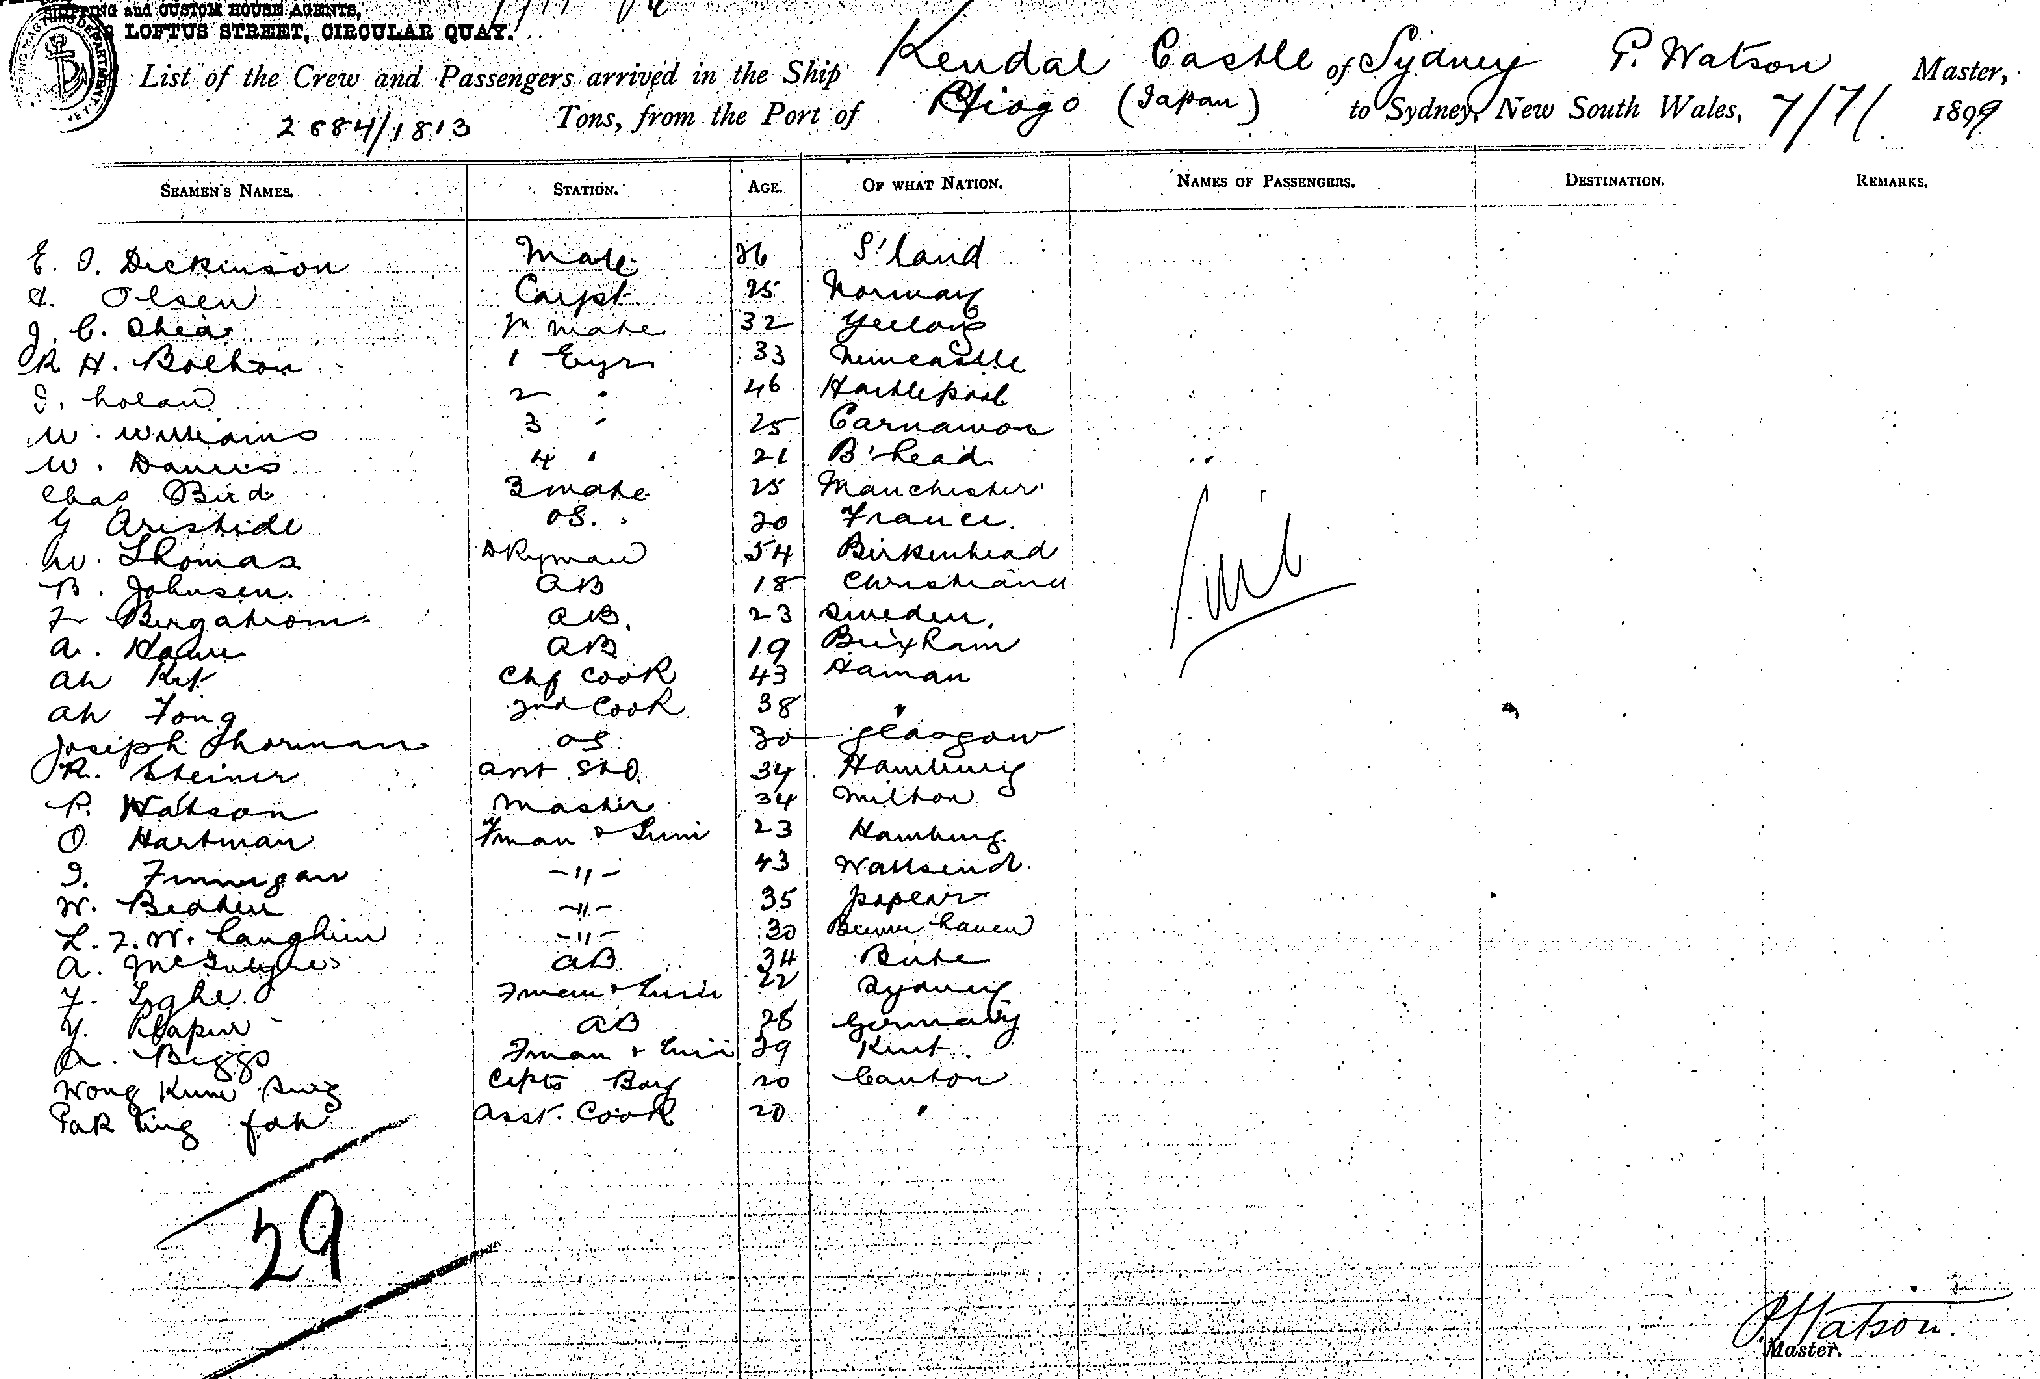 SHIPPING and CUSTOM HOUSE AGENTS,
LOFTUS STREET, CIRCULAR QUAY.
List of the Crew and Passengers arrived in the Ship Kendal Castle of Sydney P. Watson Master,
2684/1813 Tons, from the Port of Hiogo (Japan) to Sydney, New South Wales, 7/7/ 1899
SEAMEN'S NAMES. STATION. AGE. OF WHAT NATION. NAMES OF PASSENGERS. DESTINATION. REMARKS.
E. J. Dickinson Mate 26 S'land
Olsen Carpt 25 Norway
J. C. Shea mate 32 Geelong
R H. Bolton 1 Engr 33 Newcastle
2 " 46 Hartlepool
W. Williams 3 " 25 Carnarvon
W. Davies 4 " 21 B'head
Chas Bird 3 mate 25 Manchester
G Aristide OS. 20 France.
W. Thomas Dkyman 54 Birkenhead
B. Johnsen. AB 18 Christiania
F Bergstrom AB. 23 Sweden.
A. AB 19 Brixham
Ah Kit Chf Cook 43 Hainan
Ah Fong 2nd Cook 38 "
Joseph Thorman OS 20 Glasgow
R. Steiner Std. 34 Hamburg
P. Watson Master 34 Milton
O. Hartman Fman & Trim 23 Hamburg
J. Finnigan -"- 43 Wallsend
W. -"- 35
L. F. W. -"- 30 Bremerhaven
A. McIntyre AB 34 Bute
F. Tighe Fman & Trim 22 Sydney
AB 28 Germany
A. Biggs Fman & Trim 29 Kent.
Wong Kum Sing Capts Boy 20 Canton
Pak King fah Asst. Cook 20 "
Nil
29
P. Watson.
Master.